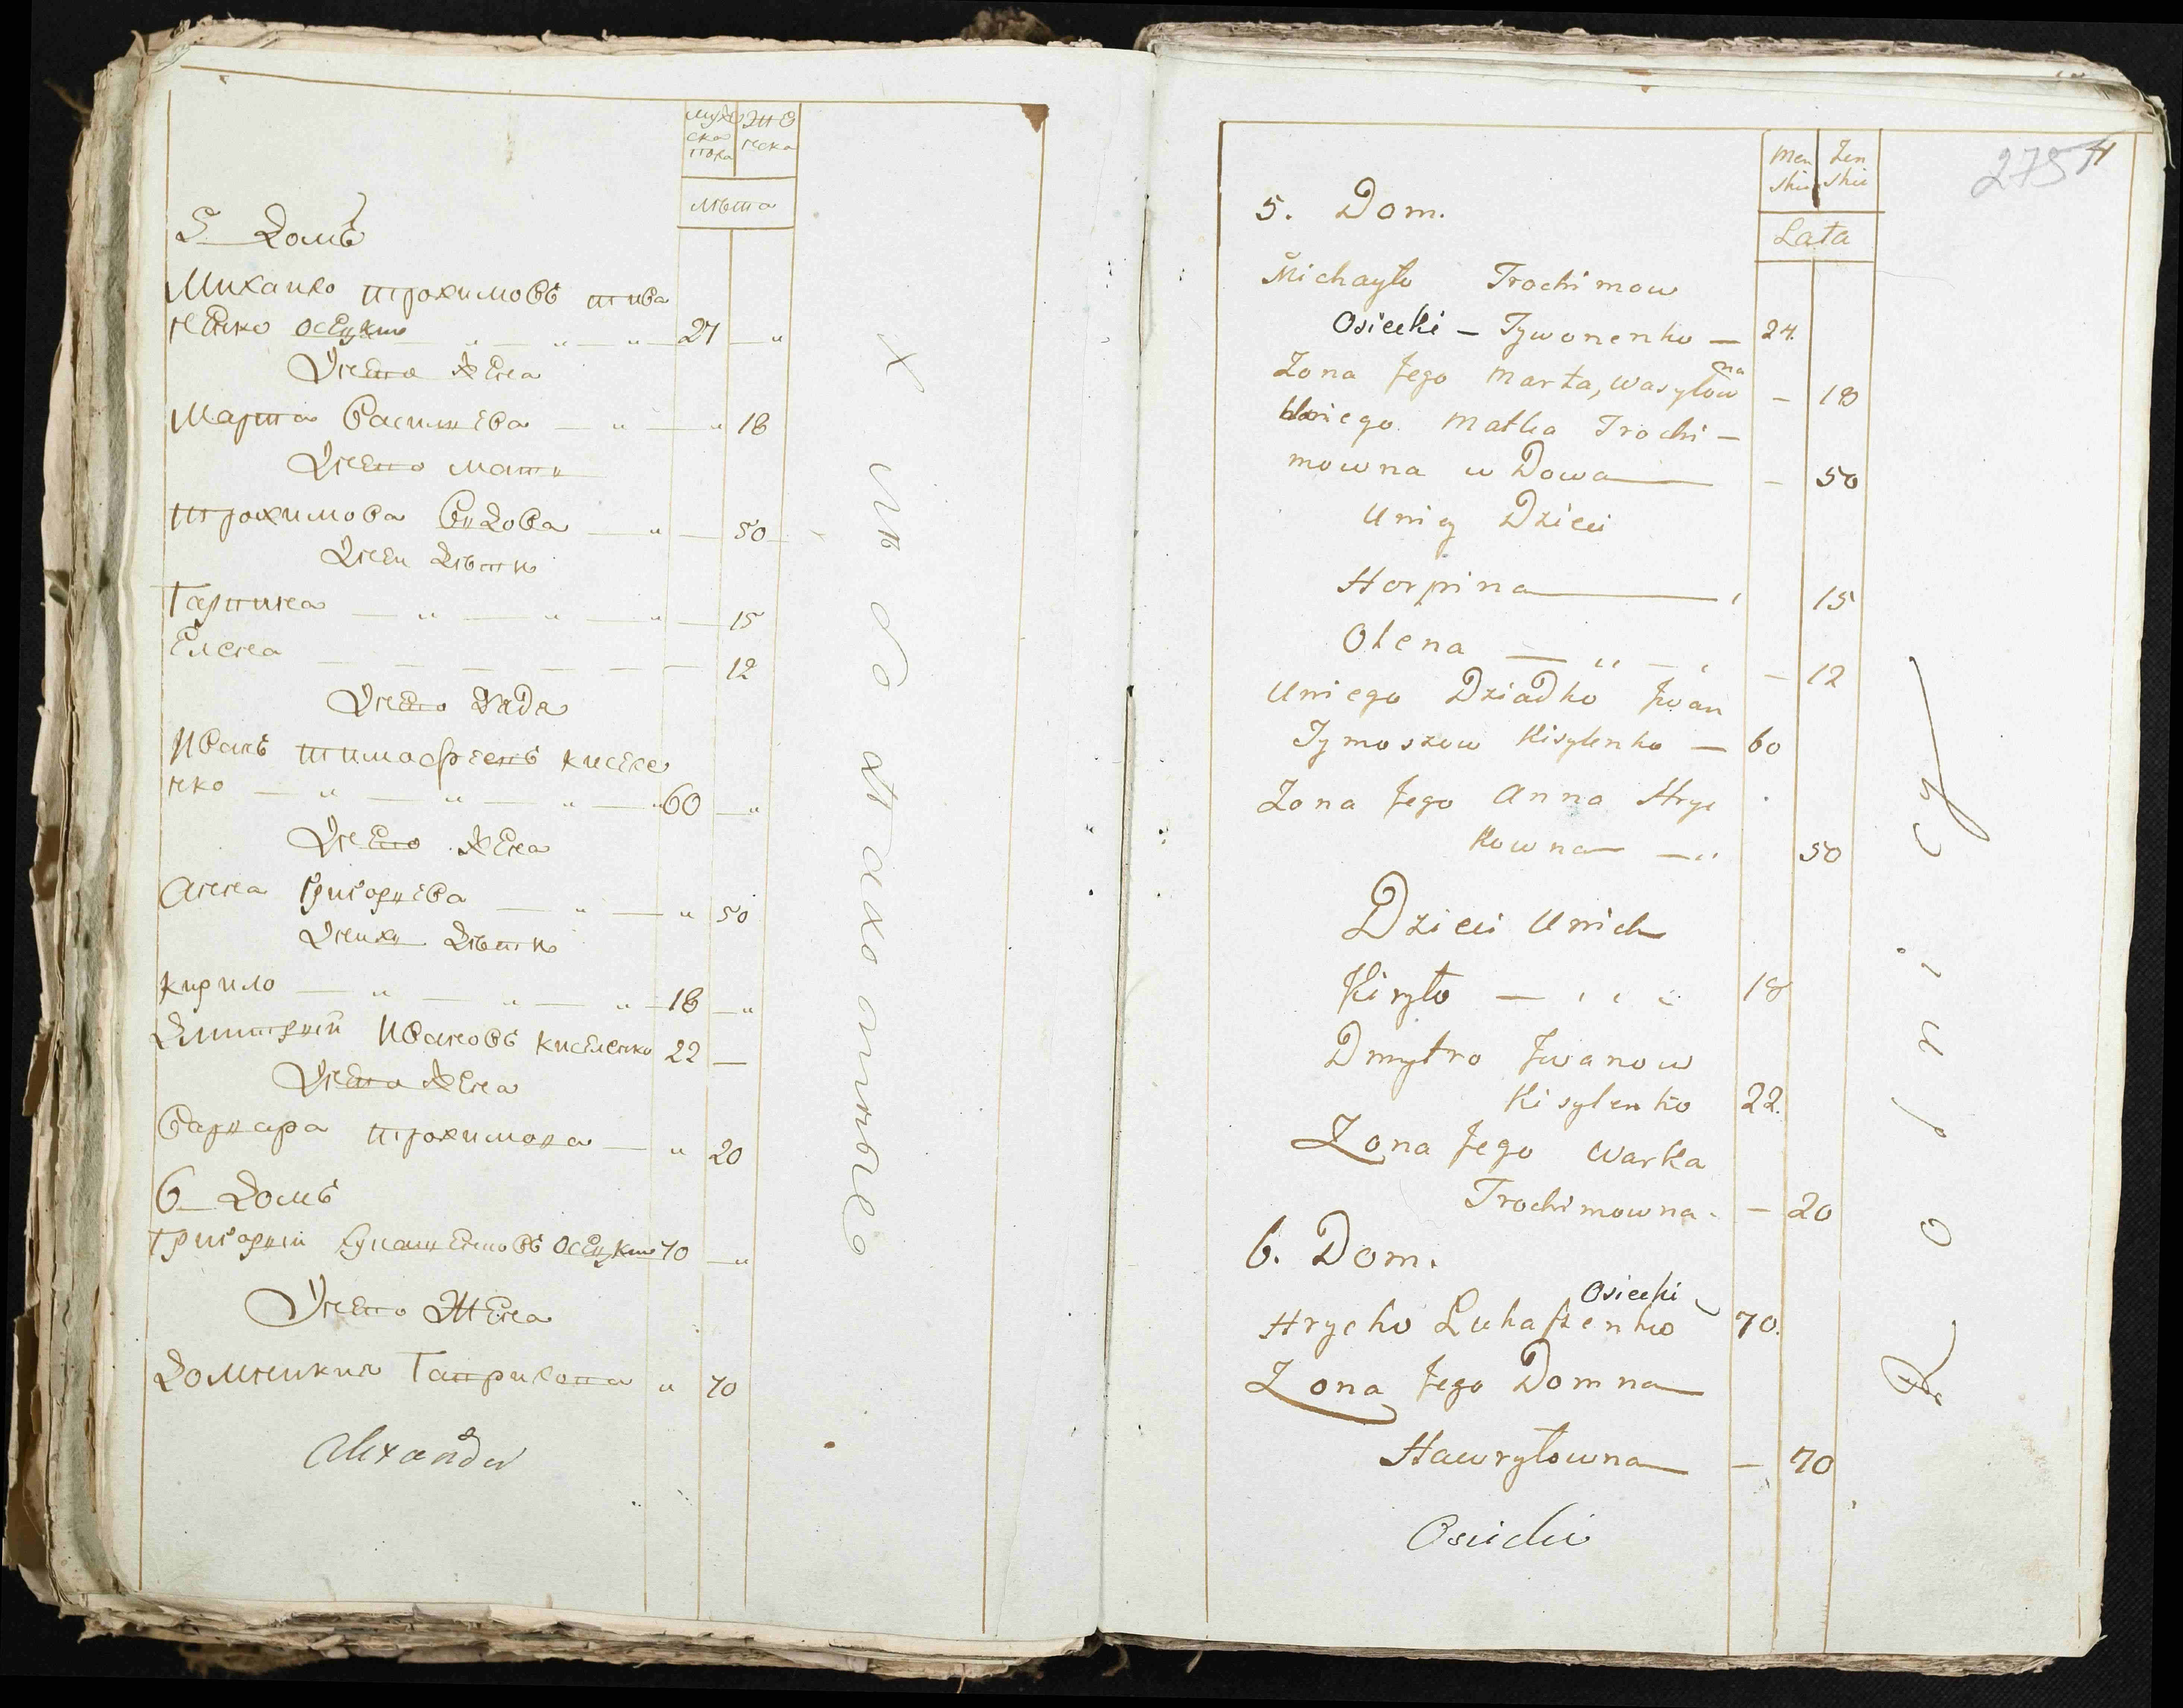 мужеска пола
женска
лѣта
5 Домъ
Михайло трохимовъ тива
ненко осецкий 27
Унего жена
Марта Василиева 18
Унего мати
трохимова вдова 50
Унеи дѣти
Гарпина 15
Елена 12
Унего дядя
Иванъ тимофіевъ киселе
нко 60
Унего жена
Анна григориева 50
Унихъ дѣти
кирило 18
Дмитрий Ивановъ киселенко 22
Унего жена
Варвара трохимова 20
6 Домъ
Григорий осецкий 70
Унего жена
Домникия Гаврилова 70
Alexander
275
Men
skie
Zen
skie
Lata
5. Dom.
Michayło Trochimow
Osiecki – Tywonenko – 24.
Zona Jego Marta, Wasylow
na – 18
Uniego Matka Trochi –
mowna wDowa – 50
Uniey Dzieci
Horpina 15
Olena – 12
Uniego Dziadko Jwan
Tymoszow Kisylenko – 60
Zona Jego Anna Hryc
kowna 50
Dzieci Unich
Kiryło – 18
Dmytro Jwanow
Kisylenko 22.
Zona Jego Warka
Trochimowna. – 20
6. Dom.
Osiecki
Hrycko Lukaszenko 70.
Zona Jego Domna
Hawryłowna – 70
Osiecki
Rolnicy